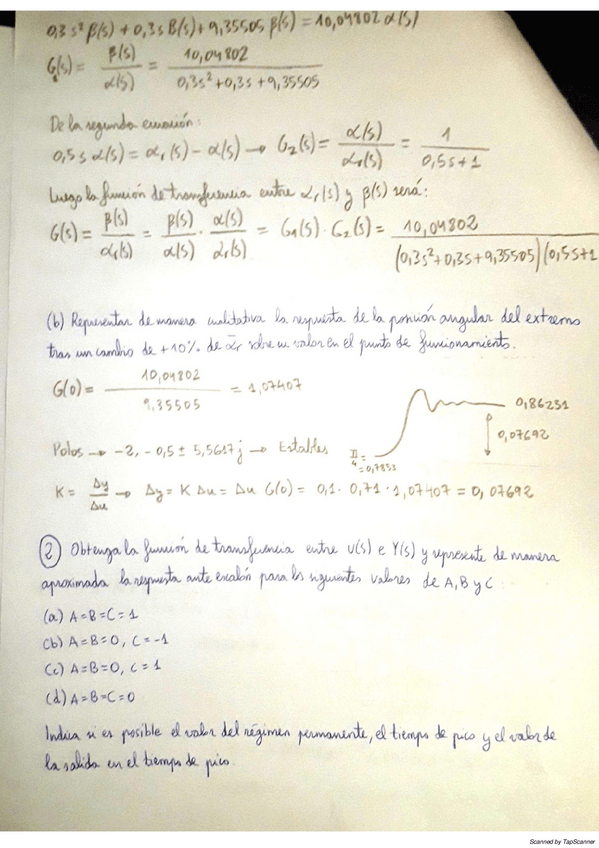 0,3 s² β(s) + 0,3s β(s) + 9,35505 β(s) = 10,04802 α(s)
G₁(s) = β(s)/α(s) = 10,04802/(0,3s² + 0,3s + 9,35505)
De la segunda ecuación:
0,5 s α(s) = αr(s) - α(s) → G₂(s) = α(s)/αr(s) = 1/(0,5s+1)
Luego la función de transferencia entre αr(s) y β(s) será:
G(s) = β(s)/αr(s) = β(s)/α(s) · α(s)/αr(s) = G₁(s) · G₂(s) = 10,04802/((0,3s²+0,3s+9,35505)(0,5s+1
(b) Representar de manera cualitativa la respuesta de la posición angular del extremo
tras un cambio de +10% de αr sobre su valor en el punto de funcionamiento.
G(0) = 10,04802/9,35505 = 1,07407
0,86231
0,07692
Polos → -2, -0,5 ± 5,5617j → Estables
π/4 = 0,7853
K = Δy/Δu → Δy = K Δu = Δu G(0) = 0,1 · 0,71 · 1,07407 = 0,07692
② Obtenga la función de transferencia entre U(s) e Y(s) y represente de manera
aproximada la respuesta ante escalón para los siguientes valores de A, B y C:
(a) A=B=C=1
(b) A=B=0, C=-1
(c) A=B=0, C=1
(d) A=B=C=0
Indica si es posible el valor del régimen permanente, el tiempo de pico y el valor de
la salida en el tiempo de pico.
Scanned by TapScanner